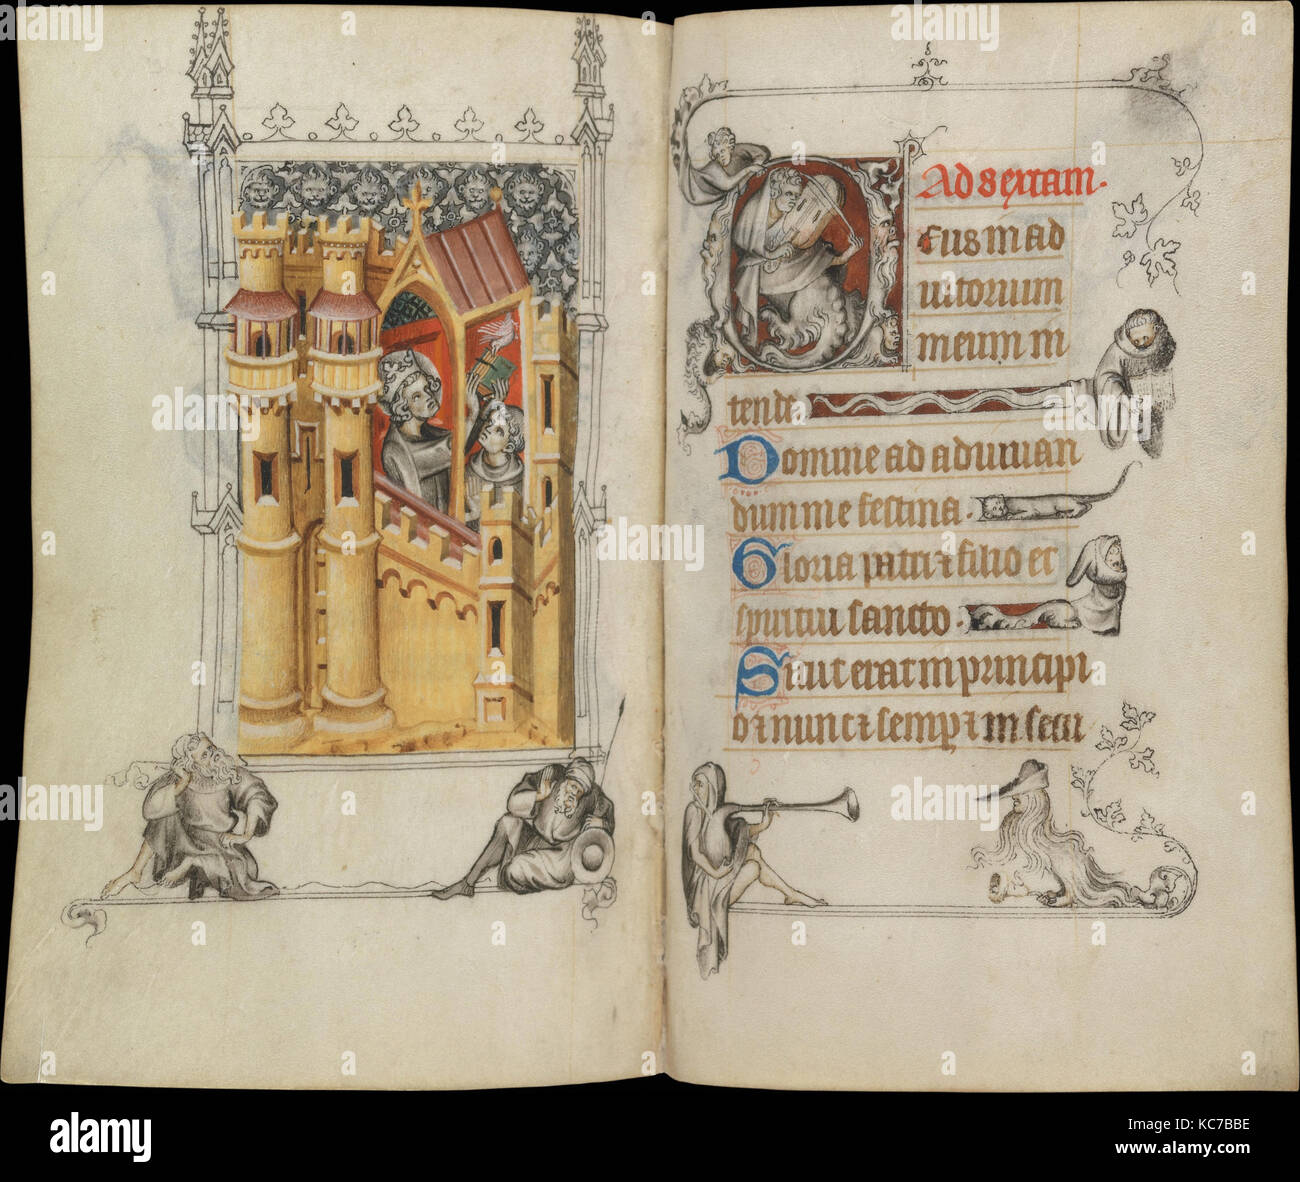 Ad sextam.
Deus in ad
iutorium
meum in
tende.
Domine ad adiuuan
dum me festina.
Gloria patri & filio et
spiritui sancto.
Sicut erat in principi
o & nunc & semp & in secu
alamy stock photo
KC7BBE
www.alamy.com